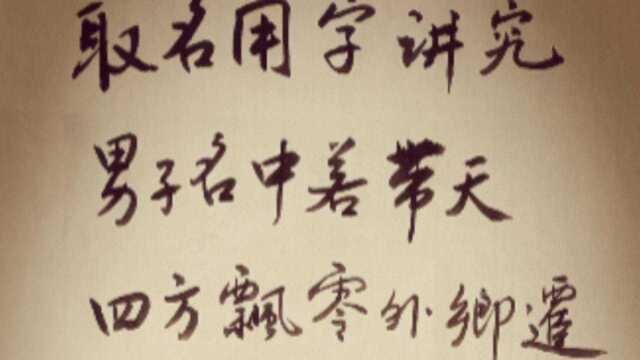 取名用字讲究
男子名中若带天
四方飄零外鄉遷